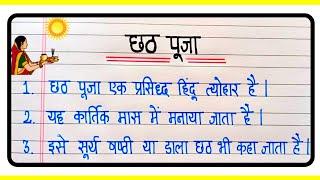 छठ पूजा
1. छठ पूजा एक प्रसिद्ध हिंदू त्योहार है।
2. यह कार्तिक मास में मनाया जाता है।
3. इसे सूर्य षष्ठी या डाला छठ भी कहा जाता है।